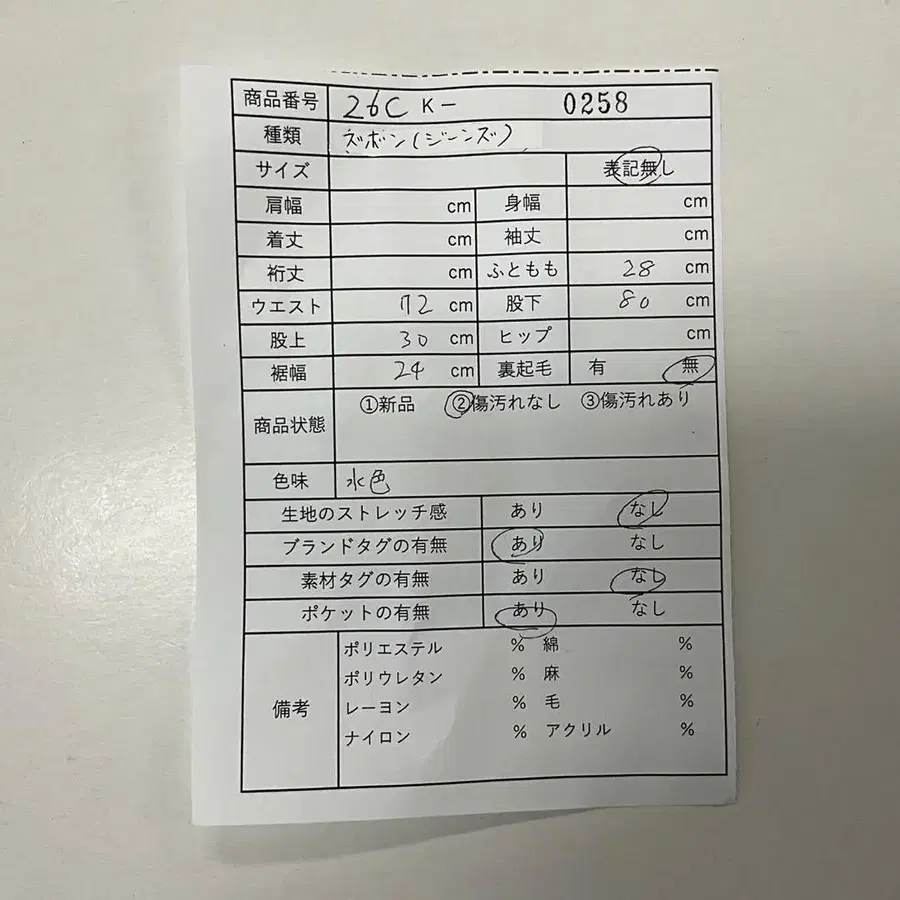 商品番号 26C K- 0258
種類 ズボン(ジーンズ)
サイズ 表記無し
肩幅 cm 身幅 cm
着丈 cm 袖丈 cm
裄丈 cm ふともも 28 cm
ウエスト 72 cm 股下 80 cm
股上 30 cm ヒップ cm
裾幅 24 cm 裏起毛 有 無
商品状態 ①新品 ②傷汚れなし ③傷汚れあり
色味 水色
生地のストレッチ感 あり なし
ブランドタグの有無 あり なし
素材タグの有無 あり なし
ポケットの有無 あり なし
備考
ポリエステル % 綿 %
ポリウレタン % 麻 %
レーヨン % 毛 %
ナイロン % アクリル %